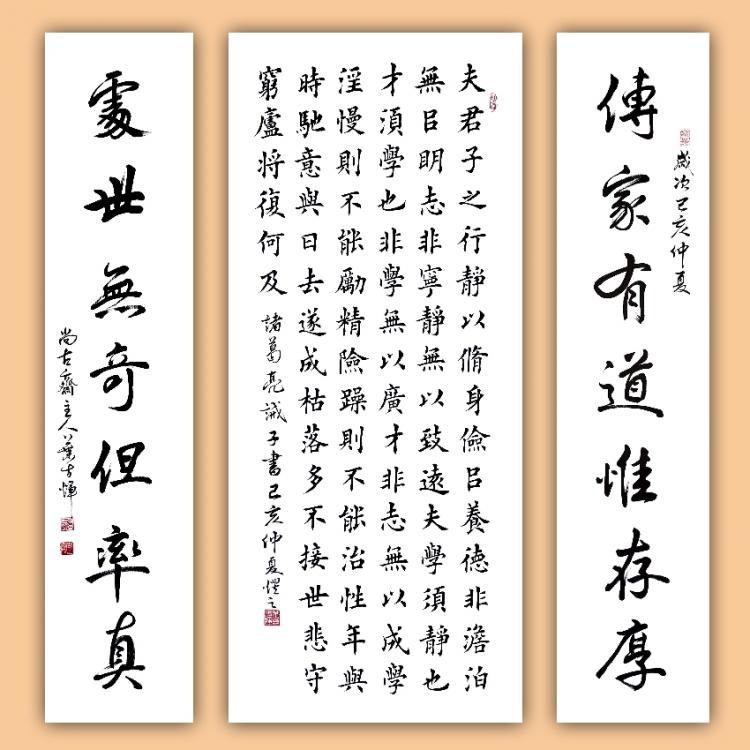 歲次己亥仲夏
傳家有道惟存厚
夫君子之行靜以脩身儉㠯養德非澹泊
無㠯明志非寧靜無以致遠夫學須靜也
才須學也非學無以廣才非志無以成學
淫慢則不能勵精險躁則不能治性年與
時馳意與日去遂成枯落多不接世悲守
窮廬將復何及 諸葛亮誡子書己亥仲夏
處世無奇但率真
尚古齋主人